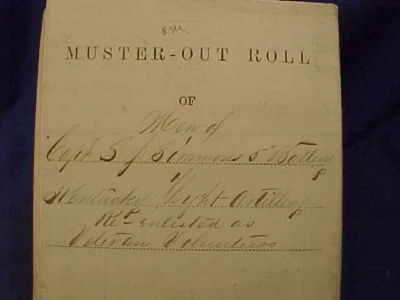 MUSTER-OUT ROLL
OF
Men of
Capt S J Simmons 5" Battery
Kentucky Light Artillery
Re enlisted as
Veteran Volunteers